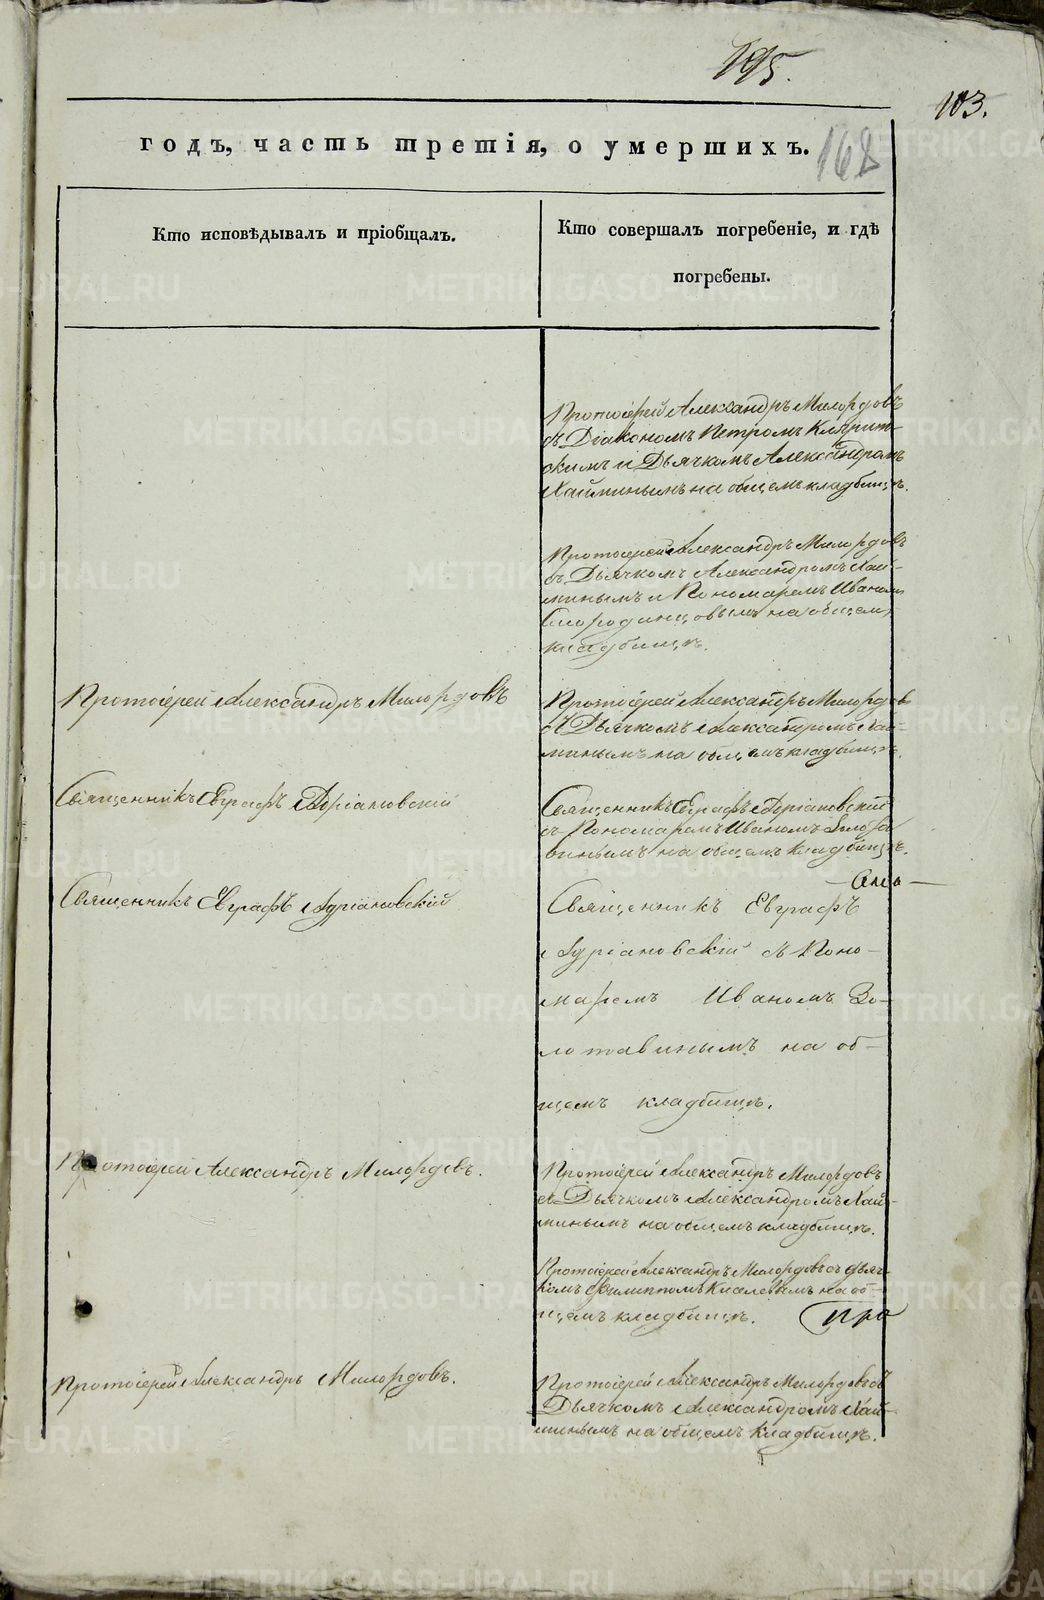 195.
103.
годъ, часть третія, о умершихъ.
168
Кто исповѣдывалъ и пріобщалъ.
Кто совершалъ погребеніе, и гдѣ
погребены.
Протоіерей Александръ Милордовъ
съ Діакономъ Петромъ
скимъ и Дьячкомъ Александромъ
Хайминымъ на общемъ кладбищѣ.
Протоіерей Александръ Милордовъ
съ Дьячкомъ Александромъ Хай-
минымъ и Пономаремъ Иваномъ
на общемъ
кладбищѣ.
Протоіерей Александръ Милордовъ
Протоіерей Александръ Милордовъ
съ Дьячкомъ Александромъ Хай-
минымъ на общемъ кладбищѣ.
Священникъ Евграфъ Адріановскій
Священникъ Евграфъ Адріановскій
съ Пономаремъ Иваномъ Золота
винымъ на общемъ кладбищѣ.
Священникъ Евграфъ Адріановскій
Священникъ Евграфъ
Адріановскій съ Поно-
маремъ Иваномъ Зо-
лотавинымъ на об-
щемъ кладбищѣ.
Протоіерей Александръ Милордовъ.
Протоіерей Александръ Милордовъ
съ Дьячкомъ Александромъ Хай-
минымъ на общемъ кладбищѣ.
Протоіерей Александръ Милордовъ съ Дьяч-
комъ Филиппомъ Киселевымъ на об-
щемъ кладбищѣ. Про
Протоіерей Александръ Милордовъ.
Протоіерей Александръ Милордовъ съ
Дьячкомъ Александромъ Хай-
минымъ на общемъ кладбищѣ.
METRIKI.GASO-URAL.RU